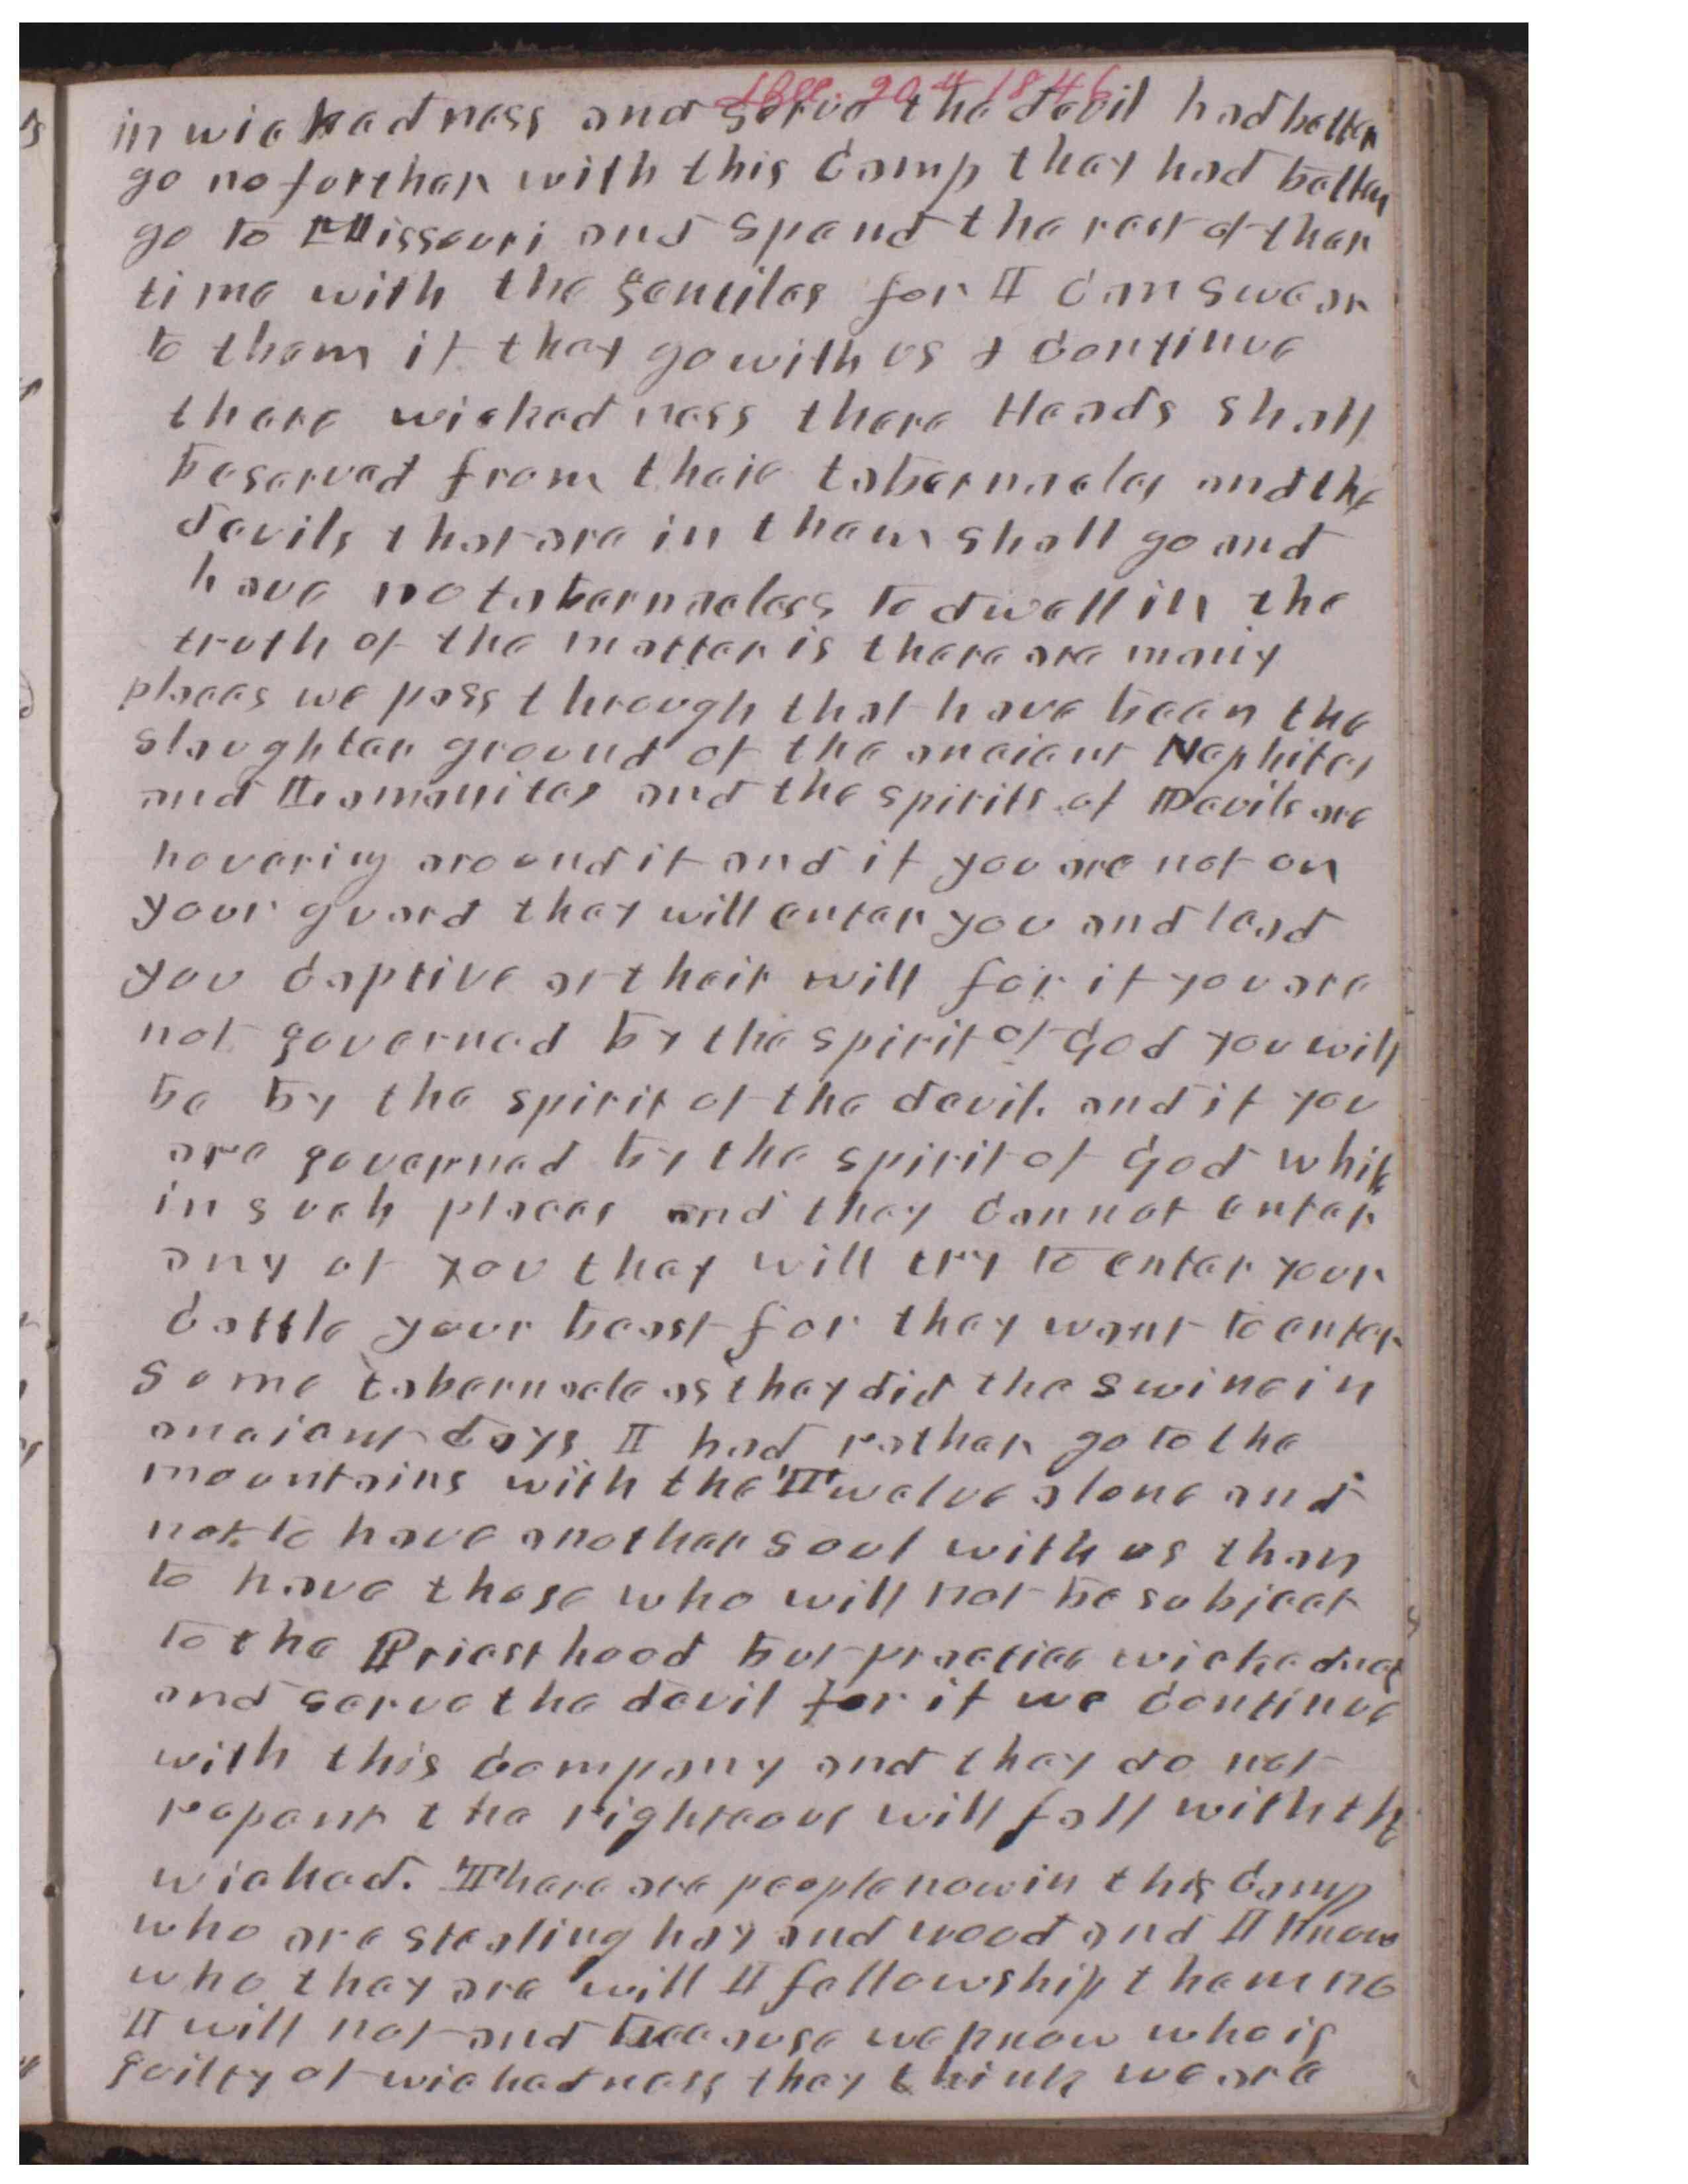 Dec. 20th 1846
in wickedness and serve the devil had better
go no forther with this Camp they had better
go to Missouri and spend the rest of ther
time with the gentiles for I can swear
to them if they go with us & continue
there wickedness there Heads shall
be served from theie tabernacles and the
devils that are in them shall go and
have no tabernacless to dwell in the
truth of the matter is there are many
places we pass through that have been the
slaughter ground of the ancient Nephites
and Lamanites and the spirits of Devils are
hovering around it and if you are not on
your guard they will enter you and lead
you captive at their will for if you are
not governed by the spirit of God you will
be by the spirit of the devil. and if you
are governed by the spirit of God while
in such places and they cannot enter
any of you they will try to enter your
cattle your beast for they want to enter
some tabernacle as they did the swine in
ancient days I had rather go to the
mountains with the Twelve alone and
not to have another soul with us than
to have those who will not be subject
to the Priesthood but practice wickedness
and serve the devil for if we continue
with this company and they do not
repent the righteous will fall with the
wicked. There are people now in this Camp
who are stealing hay and wood and I know
who they are will I fellowship them no
I will not and because we know who is
guilty of wickedness they think we are